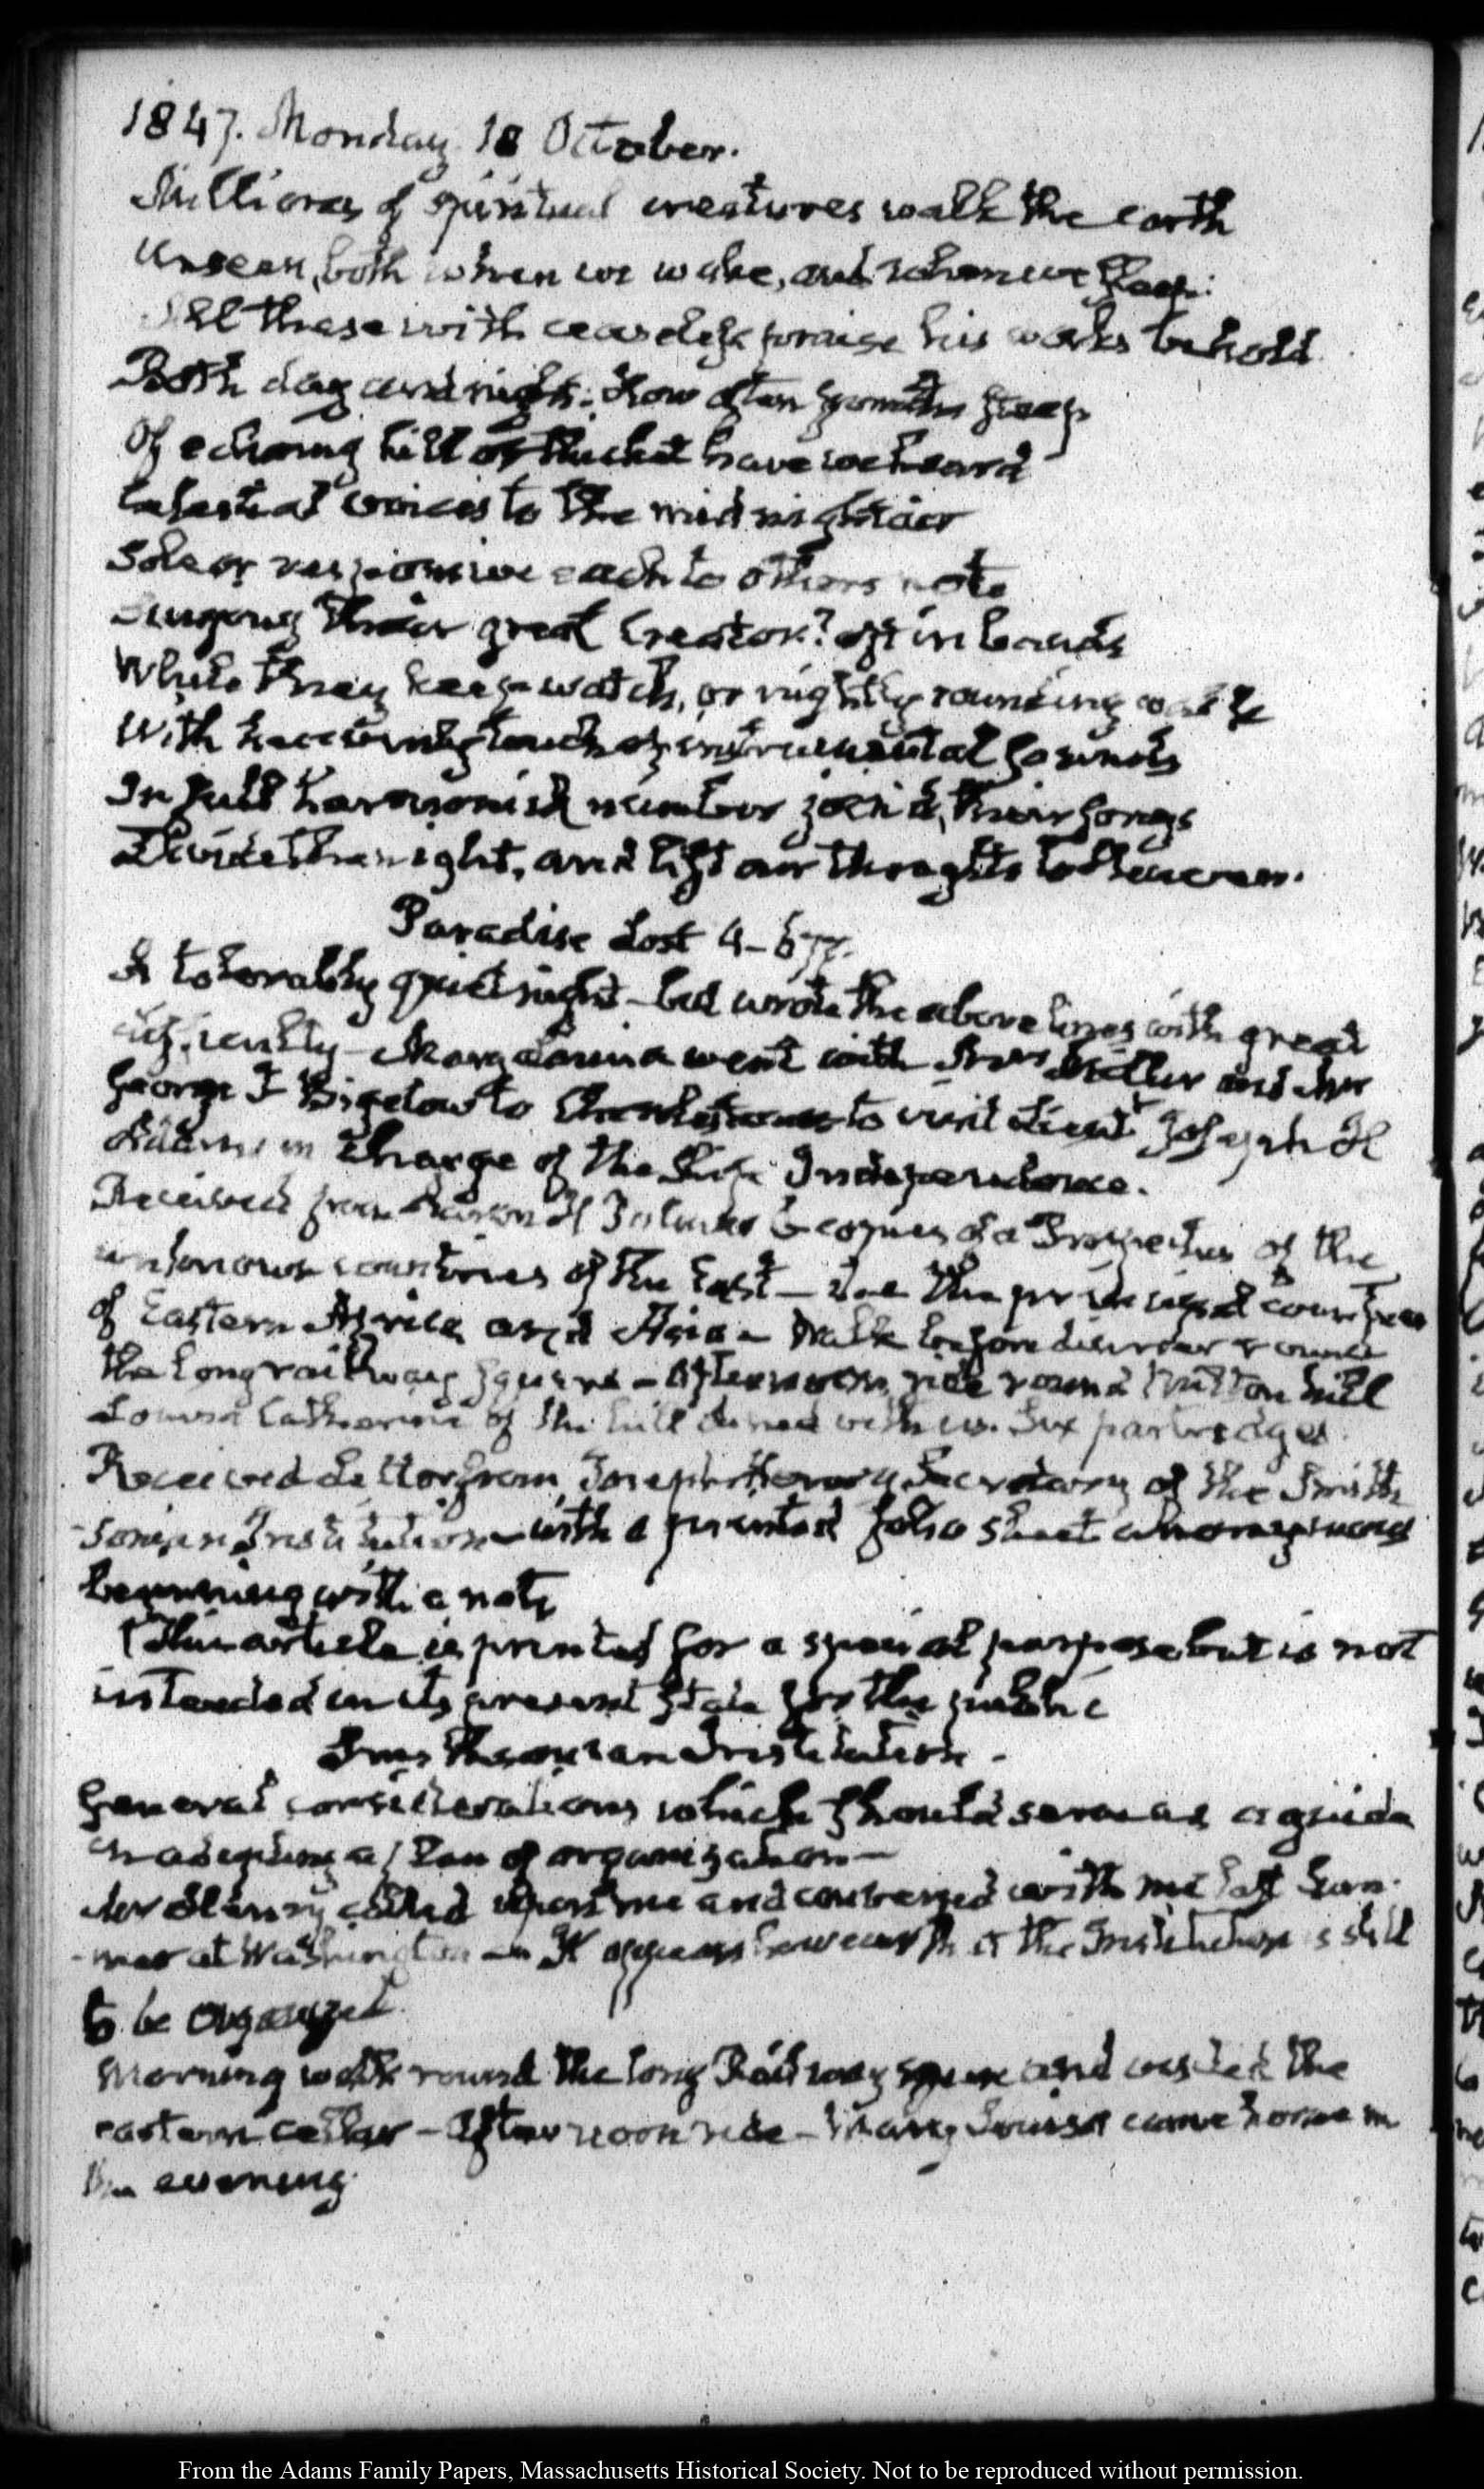 1847. Monday 18 October.
Millions of spiritual creatures walk the earth
Unseen, both when we wake, and when we sleep:
All these with ceaseless praise his works behold
Both day and night: how often from the steep
Of echoing hill or thicket have we heard
Celestial voices to the midnight air
Sole or responsive each to others note
Singing their great Creator? oft in bands
While they keep watch, or nightly rounding walk
With heavenly touch of instrumental sounds
In full harmonick number join'd, their songs
Divide the night, and lift our thoughts to Heaven.
Paradise Lost 4-677.
A tolerably quiet night - but wrote the above lines with great
difficulty - Mary Louisa went with Mrs Miller and Mr
George T Bigelow to Charlestown to visit Lieut Joseph H
Adams in charge of the Ship Independence.
Received from Aaron H Palmer copies of a Prospectus of the
unknown countries of the East - the principal countries
of Eastern Africa and Asia - Walk before dinner round
the long railway square - Afternoon ride round Milton hill
Louisa Catherine of the hill dined with us. Six partridges.
Received Letter from Joseph Henry Secretary of the Smith
sonian Institution - with a printed folio sheet
beginning with a note
(This article is printed for a special purpose but is not
intended in its present state for the public
Smithsonian Institution -
General considerations which should serve as a guide
in adopting a plan of organization -
Mr Henry called upon me and conversed with me last Sum-
-mer at Washington - It appears however that the Institution is still
to be organized.
Morning walk round the long Railway square and visited the
eastern cellar - Afternoon ride - Mary Louisa came home in
the evening.
From the Adams Family Papers, Massachusetts Historical Society. Not to be reproduced without permission.